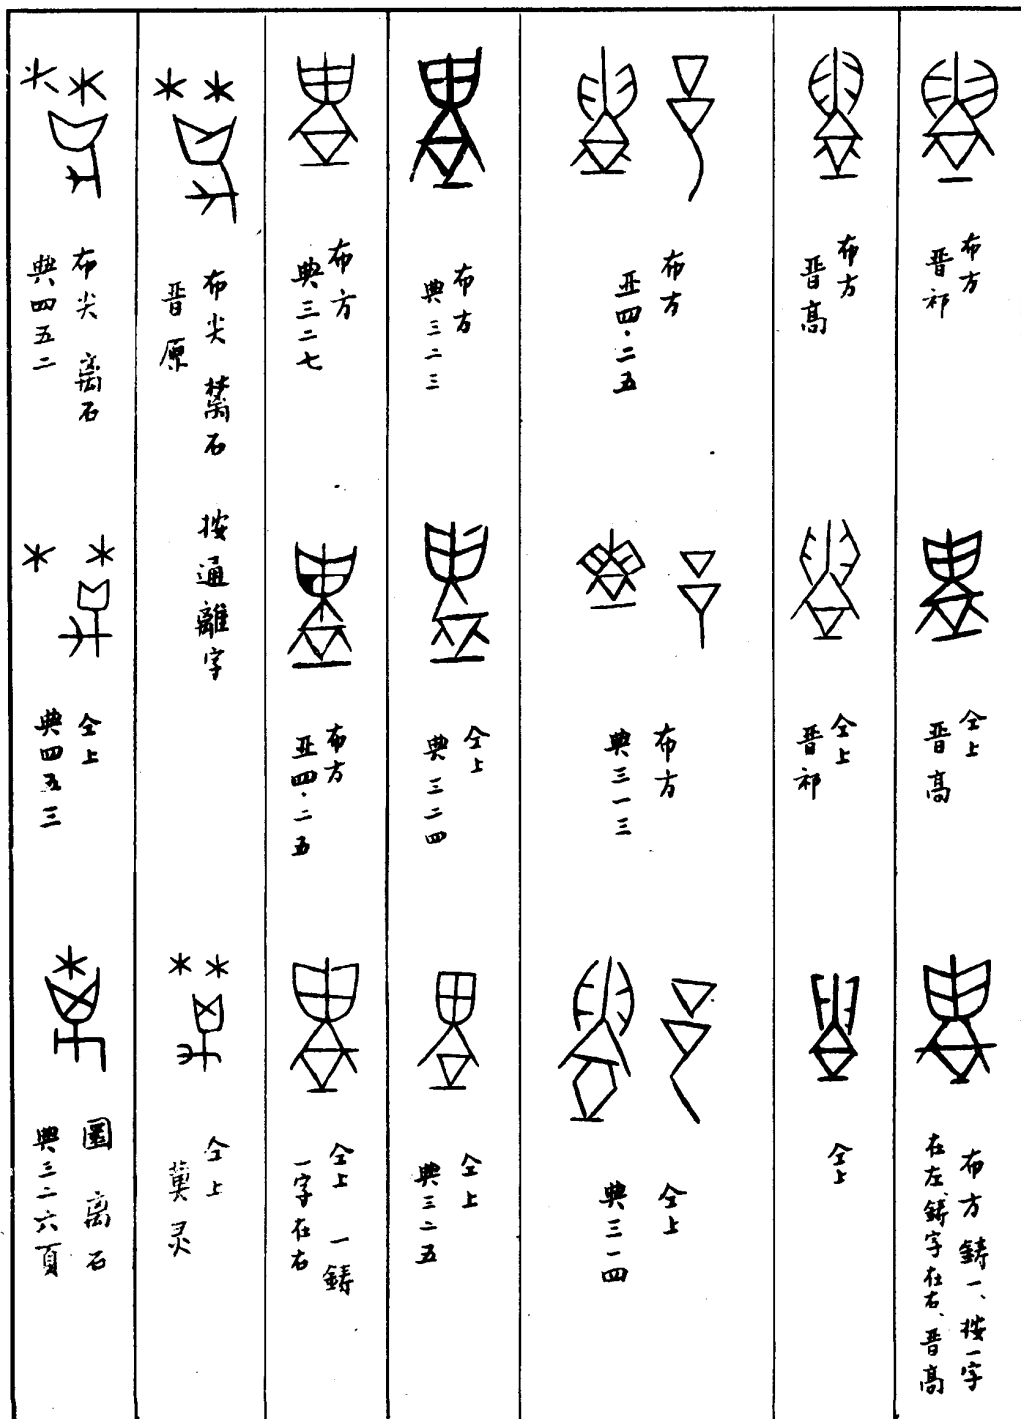 布方
晋祁
仝上
晋高
布方 鑄一、按一字
在左、鑄字在右、晋高
布方
晋高
仝上
晋祁
仝上
布方
亚四·二五
布方
典三一三
仝上
典三一四
布方
典三二三
仝上
典三二四
仝上
典三二五
布方
典三二七
布方
亚四·二五
仝上 一鑄
一字在右
布尖 蔐石 按通離字
晋原
仝上
冀灵
布尖 离石
典四五二
仝上
典四五三
圜 离石
典三二六頁